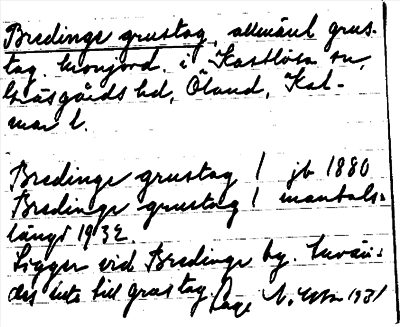 Bredinge grustag, allmänt grus-
tag. kronjord. i Kastlösa sn,
Gräsgårds hd, Öland, Kal-
mar l.
Bredinge grustag / jb 1880
Bredinge grustag / mantals-
längd 1932.
Ligger vid Bredinge by.
till grustag 1931